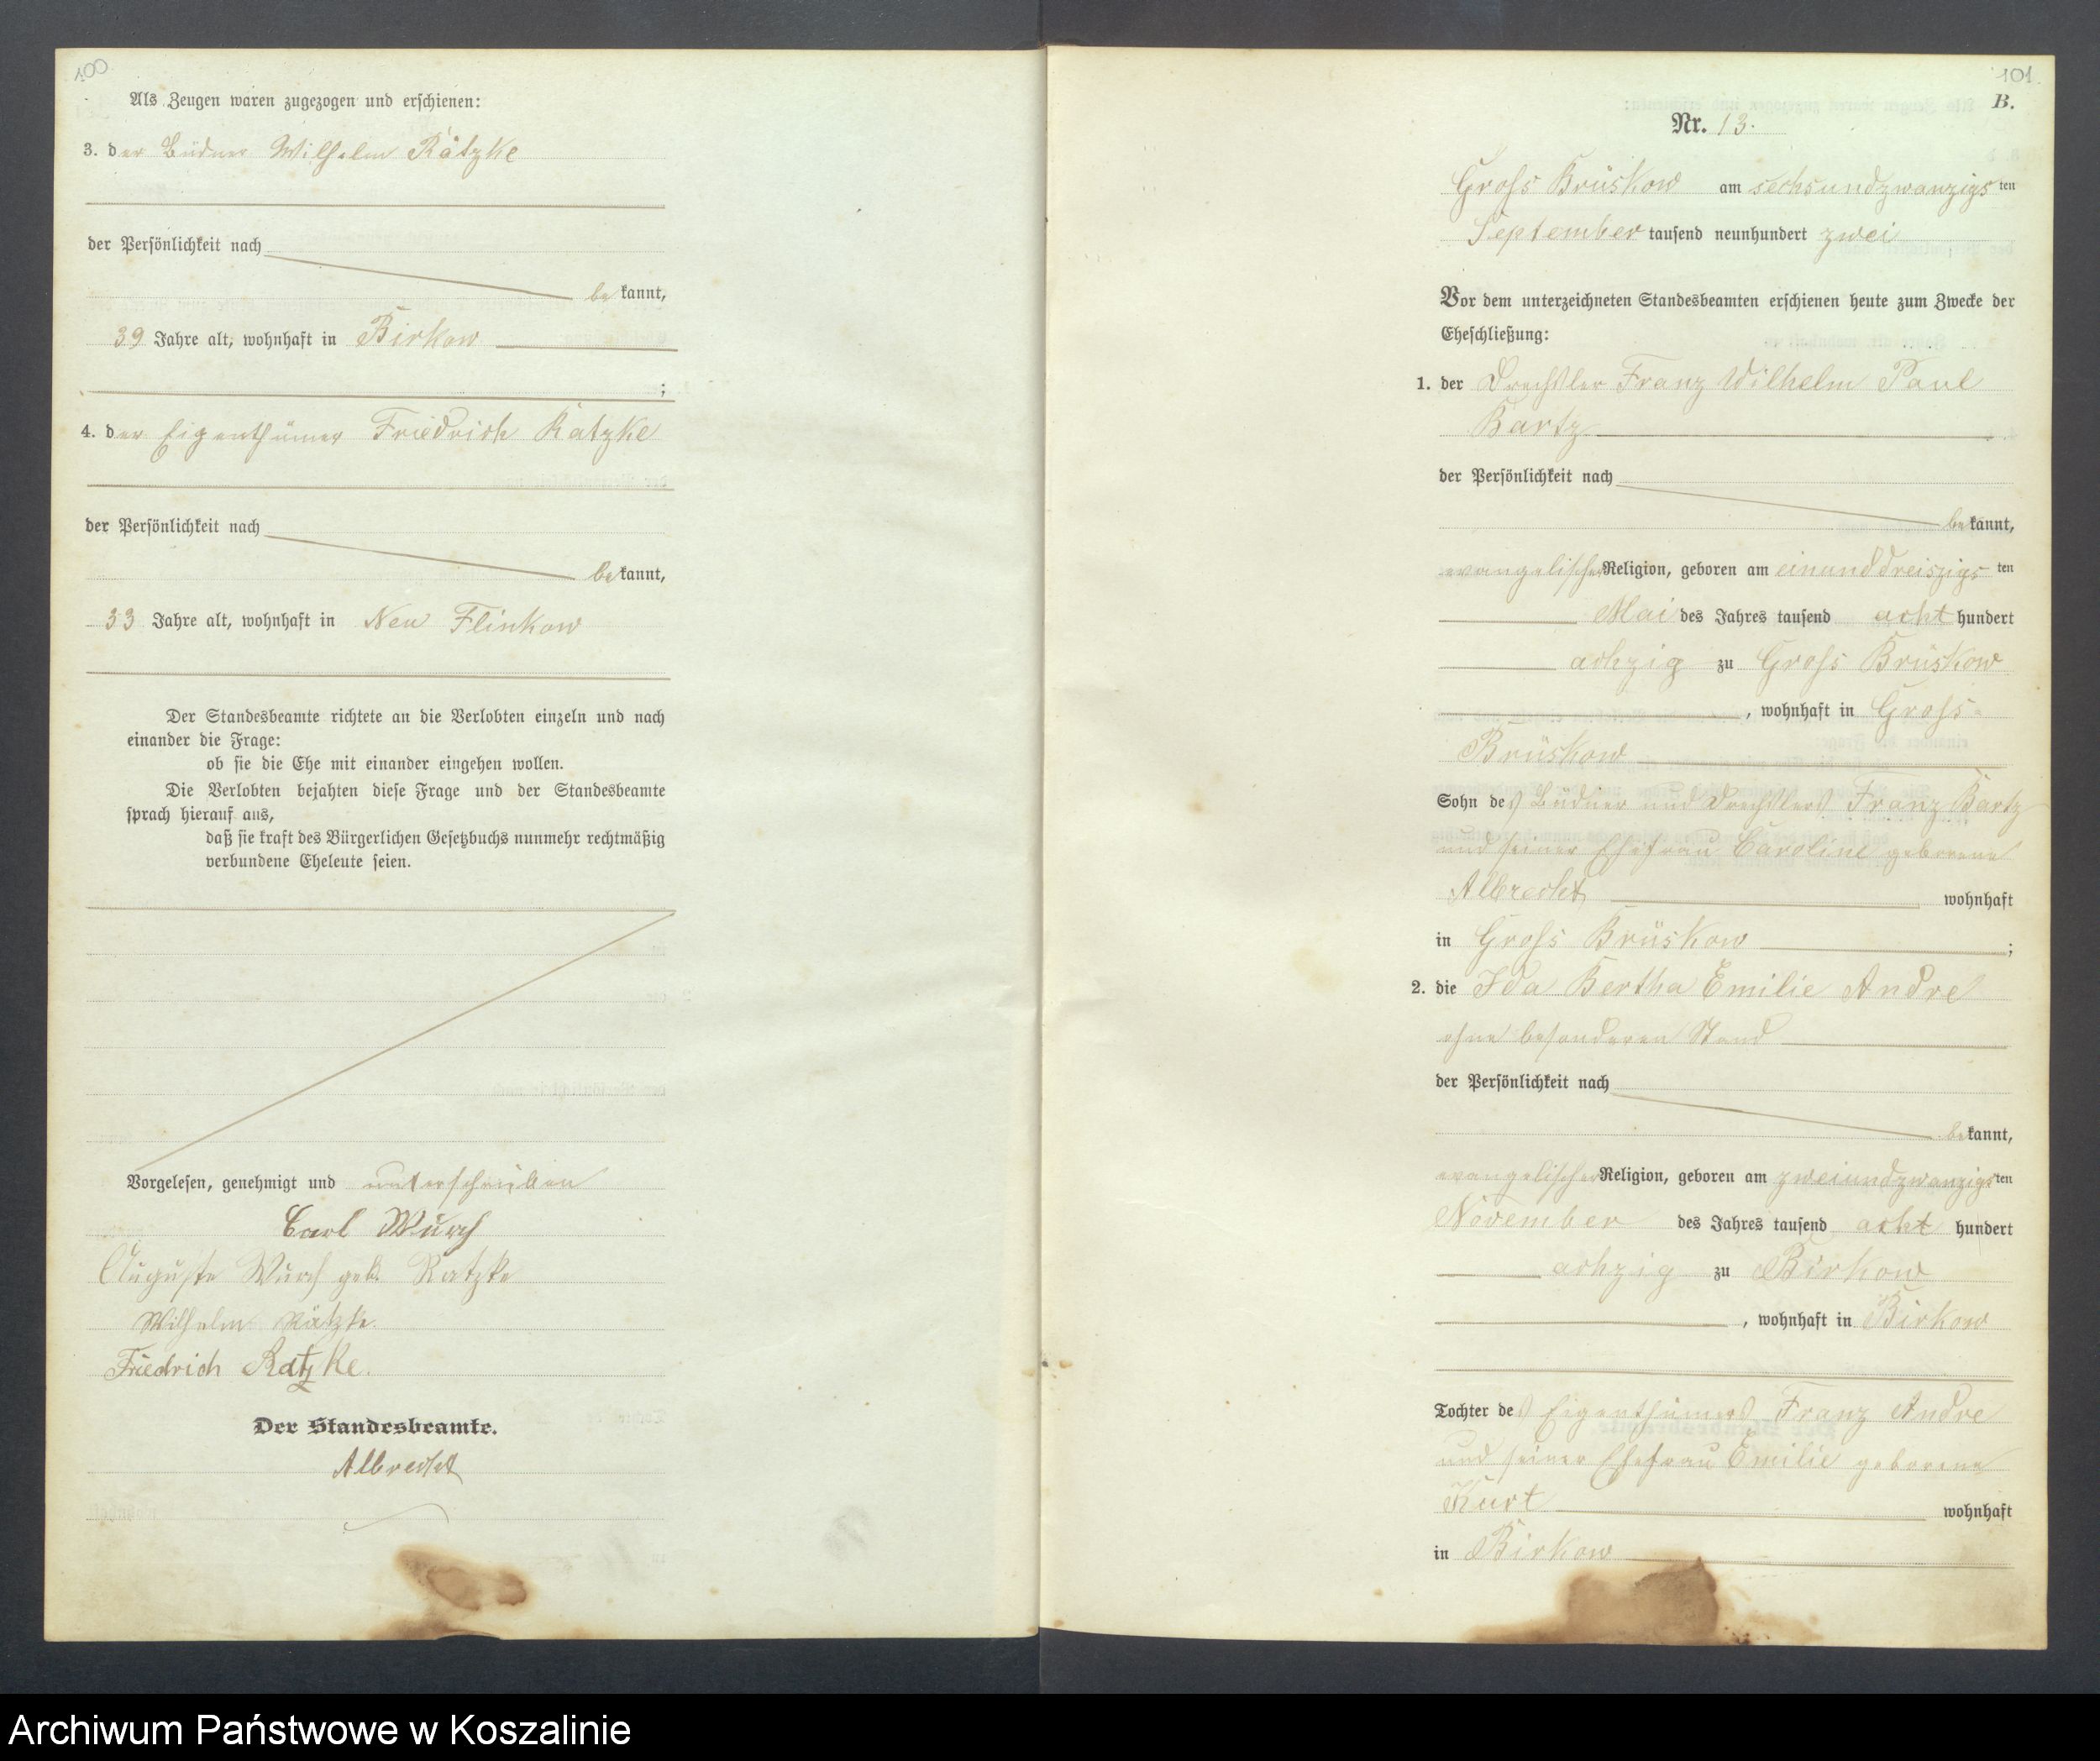 100
Als Zeugen waren zugezogen und erschienen:
3. der Büdner Wilhelm Rätzke
der Persönlichkeit nach
be kannt,
39 Jahre alt, wohnhaft in Birkow
;
4. der Eigenthümer Friedrich Ratzke
der Persönlichkeit nach
be kannt,
33 Jahre alt, wohnhaft in Neu Flinkow
Der Standesbeamte richtete an die Verlobten einzeln und nach
einander die Frage:
ob sie die Ehe mit einander eingehen wollen.
Die Verlobten bejahten diese Frage und der Standesbeamte
sprach hierauf aus,
daß sie kraft des Bürgerlichen Gesetzbuchs nunmehr rechtmäßig
verbundene Eheleute seien.
Vorgelesen, genehmigt und unterschrieben
Carl Wurch
Auguste Wurch geb. Ratzke
Wilhelm Rätzke.
Friedrich Ratzke.
Der Standesbeamte.
Albrecht
101
B.
Nr. 13.
Gross Brüskow am sechsundzwanzigs ten
September tausend neunhundert zwei
Vor dem unterzeichneten Standesbeamten erschienen heute zum Zwecke der
Eheschließung:
1. der Drechsler Franz Wilhelm Paul
Bartz
der Persönlichkeit nach
be kannt,
evangelischer Religion, geboren am einunddreiszigs ten
Mai des Jahres tausend acht hundert
achzig zu Gross Brüskow
, wohnhaft in Gross-
Brüskow
Sohn des Büdner und Drechslers Franz Bartz
und seiner Ehefrau Caroline geborene
Albrecht wohnhaft
in Gross Brüskow ;
2. die Ida Bertha Emilie Andre
ohne besonderen Stand
der Persönlichkeit nach
be kannt,
evangelischer Religion, geboren am zweiundzwanzigs ten
November des Jahres tausend acht hundert
achzig zu Birkow
, wohnhaft in Birkow
Tochter des Eigenthümers Franz Andre
und seiner Ehefrau Emilie geborene
Kurt wohnhaft
in Birkow
Archiwum Państwowe w Koszalinie